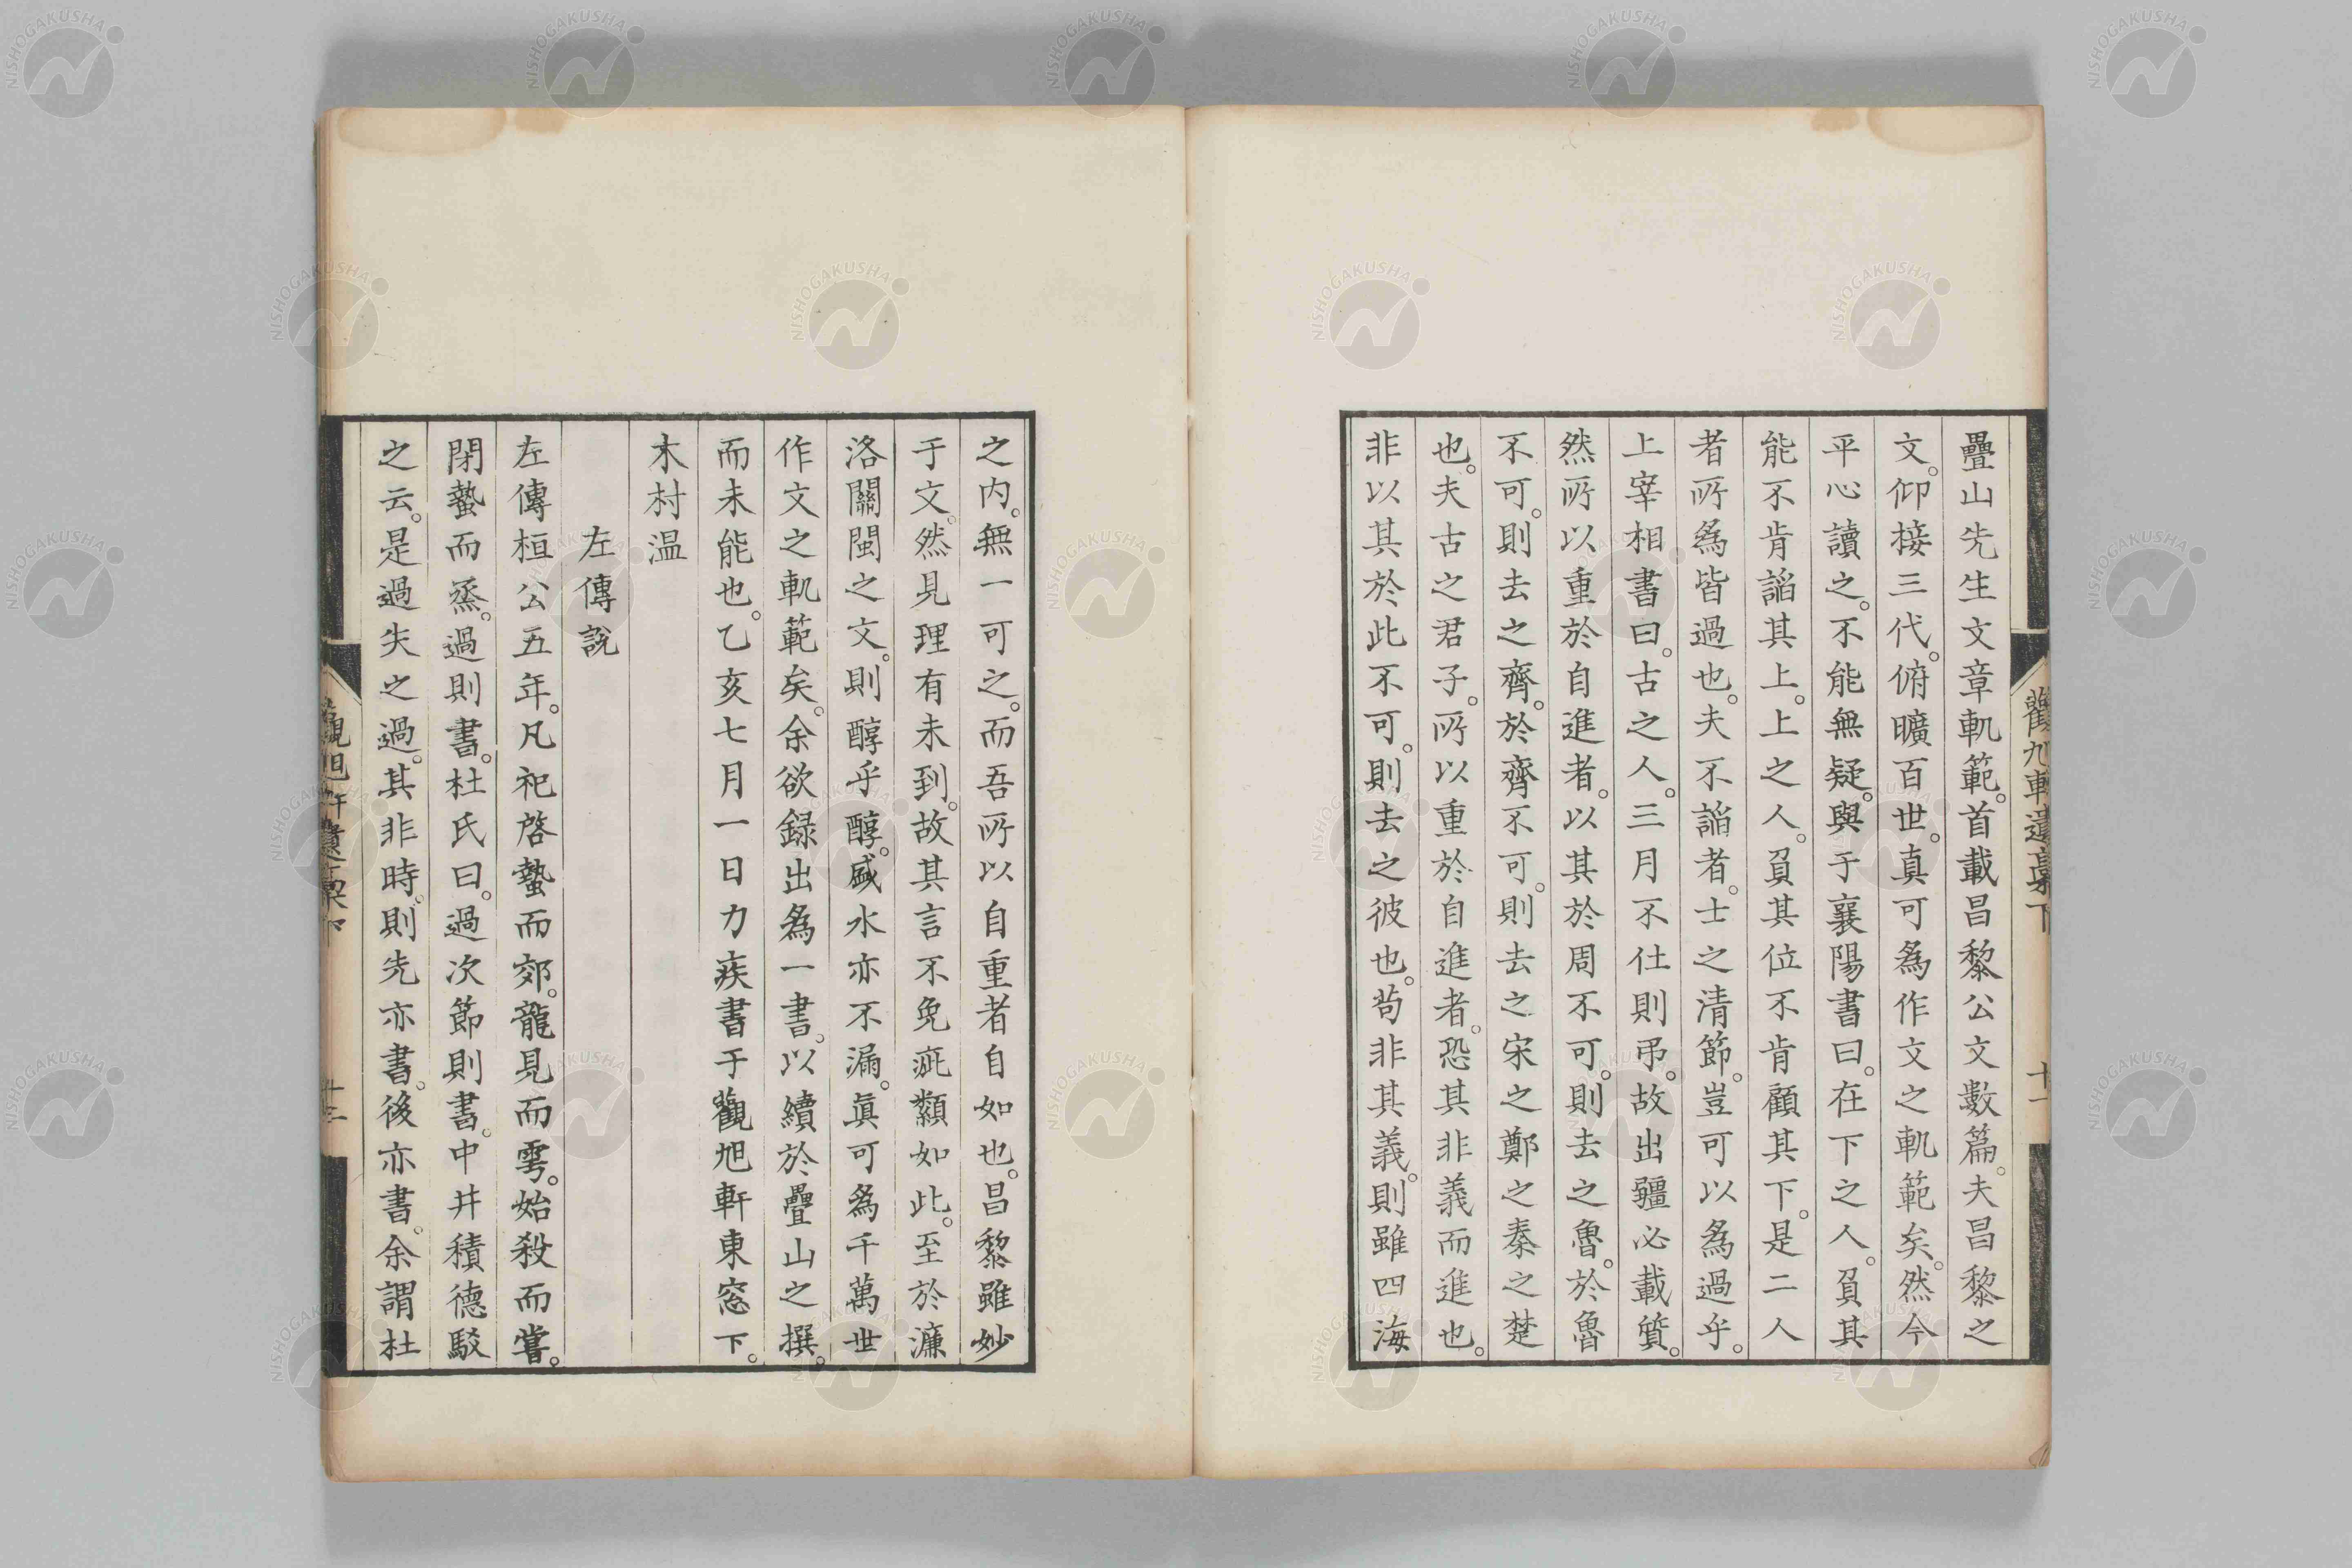 疊山先生文章軌範。首載昌黎公文數篇。夫昌黎之
文。仰接三代。俯曠百世。真可為作文之軌範矣。然今
平心讀之。不能無疑。與于襄陽書曰。在下之人。負其
能不肯諂其上。上之人。負其位不肯顧其下。是二人
者所為皆過也。夫不諂者。士之清節。豈可以為過乎。
上宰相書曰。古之人。三月不仕則弔。故出疆必載質。
然所以重於自進者。以其於周不可。則去之魯。於魯
不可。則去之齊。於齊不可。則去之宋之鄭之秦之楚
也。夫古之君子。所以重於自進者。恐其非義而進也。
非以其於此不可。則去之彼也。苟非其義。則雖四海
之内。無一可之。而吾所以自重者自如也。昌黎雖妙
于文。然見理有未到。故其言不免疵纇如此。至於濂
洛關閩之文。則醇乎醇。盛水亦不漏。眞可為千萬世
作文之軌範矣。余欲録出為一書。以續於疊山之撰。
而未能也。乙亥七月一日力疾書于觀旭軒東窓下。
木村温
左傳說
左傳桓公五年。凡祀啓蟄而郊。龍見而雩。始殺而嘗。
閉蟄而烝。過則書。杜氏曰。過次節則書。中井積德駁
之云。是過失之過。其非時。則先亦書。後亦書。余謂杜
觀旭軒遺稾下
十一
NISHOGAKUSHA